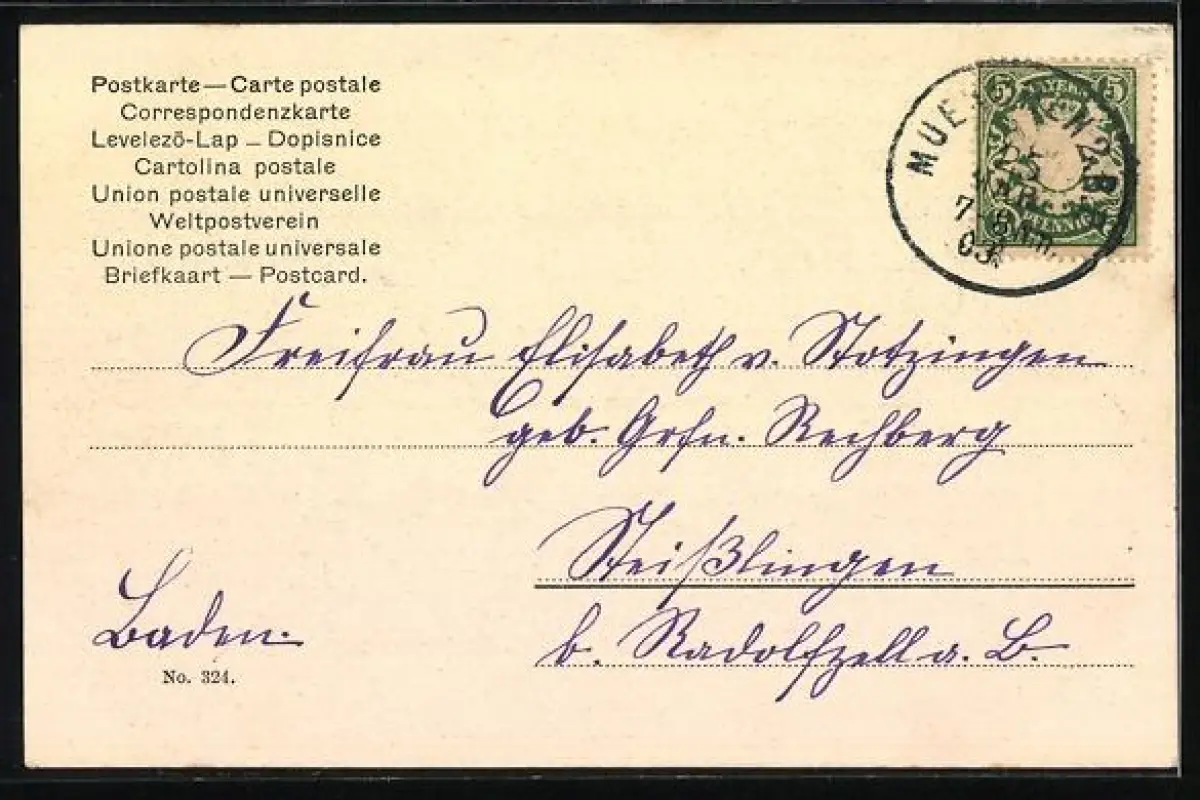 Postkarte — Carte postale
Correspondenzkarte
Levelezō-Lap – Dopisnice
Cartolina postale
Union postale universelle
Weltpostverein
Unione postale universale
Briefkaart — Postcard.
5 5
7-8 Nm.
03.
Freifrau Elisabeth v. Stotzingen
geb. Grfn. Rechberg
Steißlingen
b. Radolfzell a. B.
Baden.
No. 324.